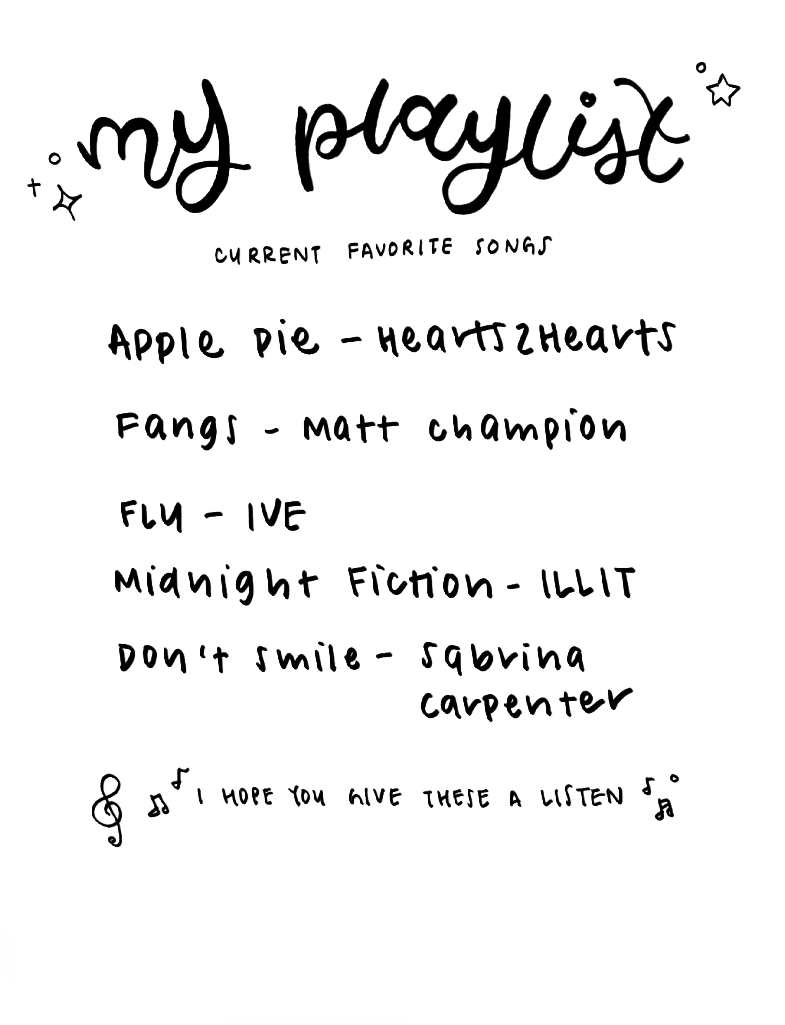 my playlist
CURRENT FAVORITE SONGS
Apple Pie - Hearts2Hearts
Fangs - Matt Champion
Fly - IVE
Midnight Fiction - ILLIT
Don't smile - Sabrina
carpenter
I HOPE YOU GIVE THESE A LISTEN